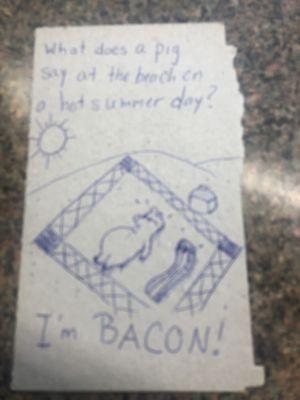 What does a pig
say at the beach on
a hot summer day?
I'm BACON!